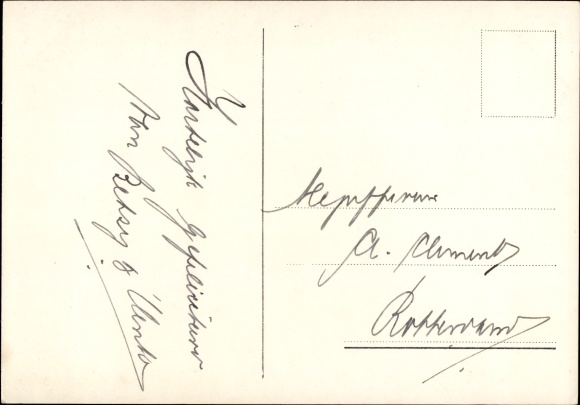 Hartelijk Gefeliciteerd
Van Betsy &
Mejuffrouw
A. Clement
Rotterdam